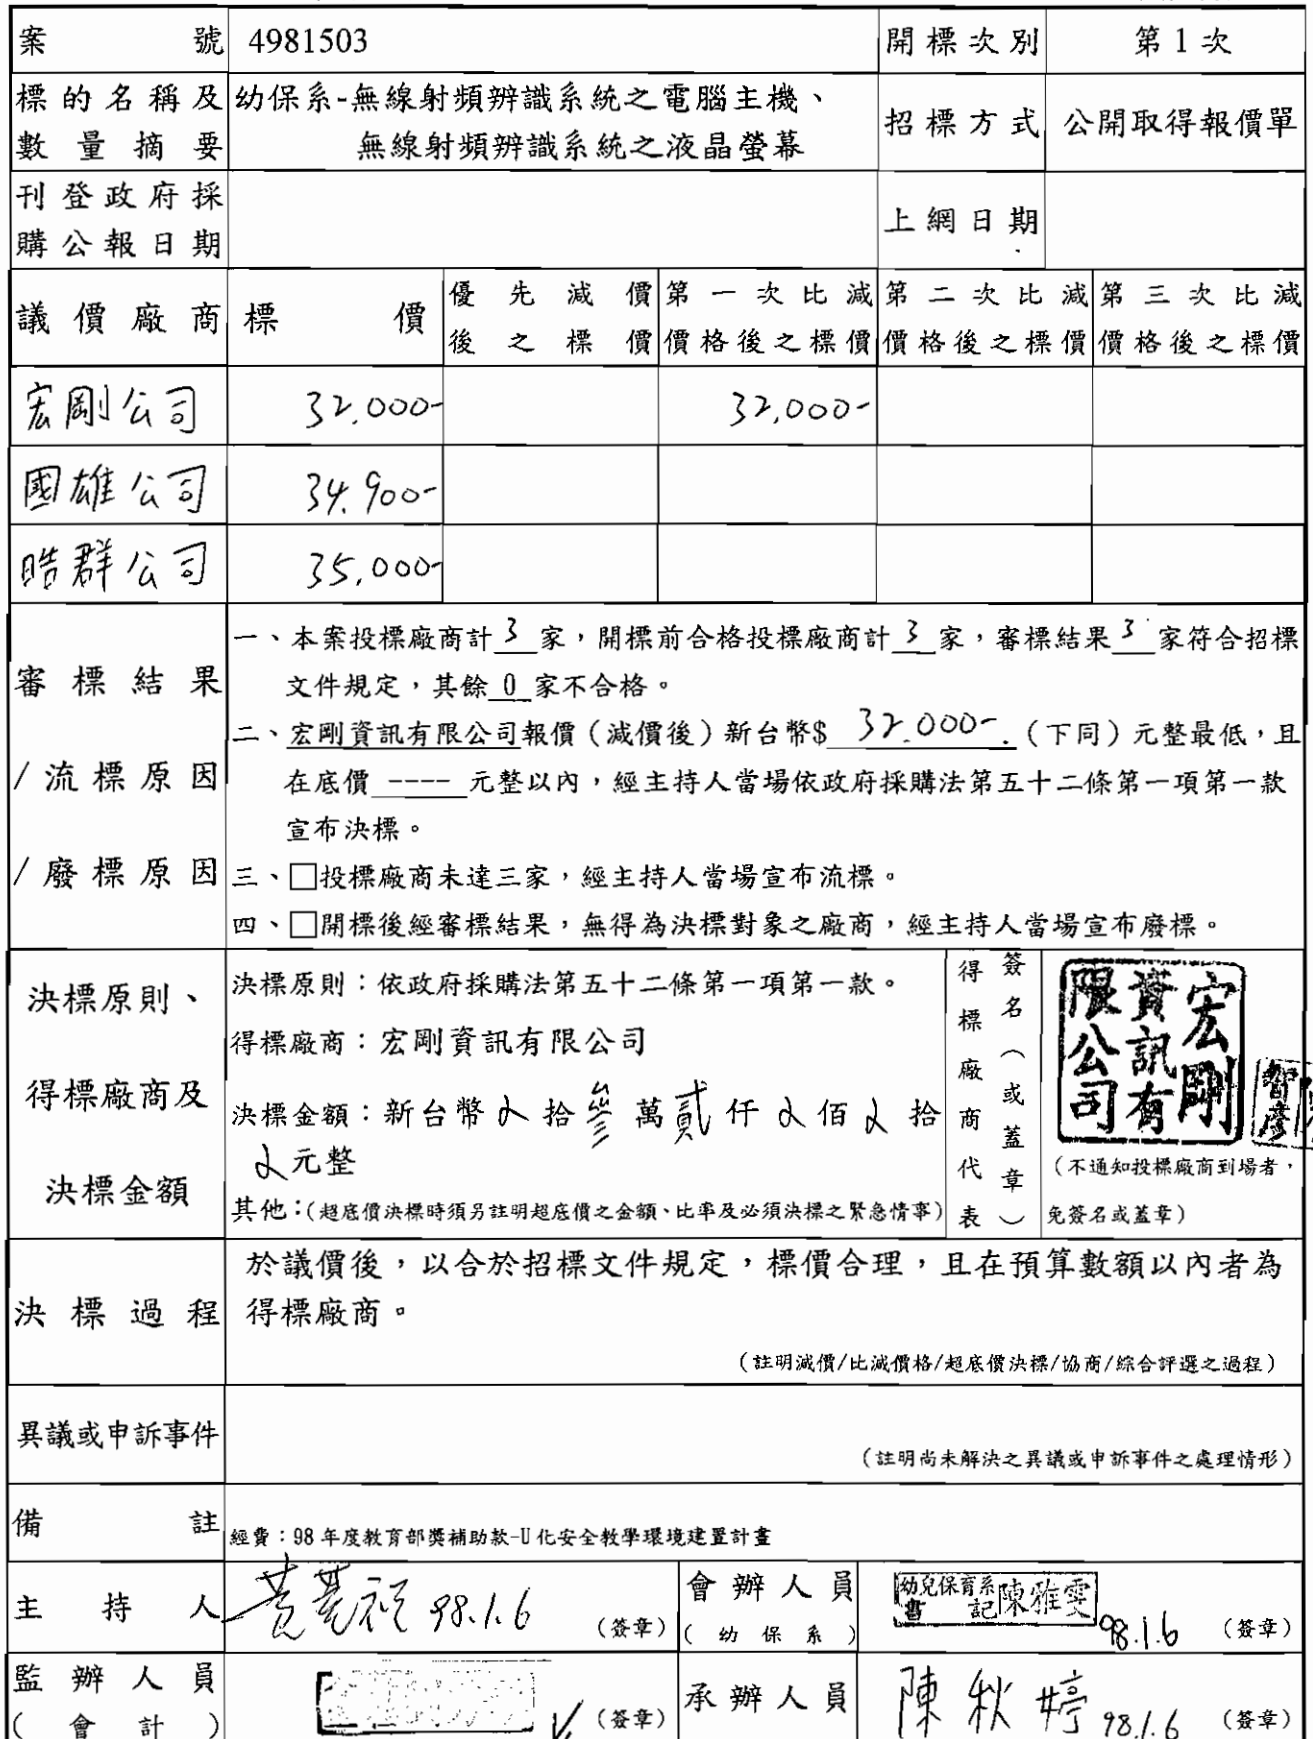 案號 4981503 開標次別 第1次
標的名稱及 幼保系-無線射頻辨識系統之電腦主機、 招標方式 公開取得報價單
數量摘要 無線射頻辨識系統之液晶螢幕
刊登政府採 上網日期
購公報日期
議價廠商 標價 優先減價 第一次比減 第二次比減 第三次比減
後之標價 價格後之標價 價格後之標價 價格後之標價
宏剛公司 32,000- 32,000-
國雄公司 34,900-
晧群公司 35,000-
審標結果
/流標原因
/廢標原因
一、本案投標廠商計 3 家,開標前合格投標廠商計 3 家,審標結果 3 家符合招標
文件規定,其餘 0 家不合格。
二、宏剛資訊有限公司報價(減價後)新台幣$ 32,000-.(下同)元整最低,且
在底價 ---- 元整以內,經主持人當場依政府採購法第五十二條第一項第一款
宣布決標。
三、□投標廠商未達三家,經主持人當場宣布流標。
四、□開標後經審標結果,無得為決標對象之廠商,經主持人當場宣布廢標。
決標原則、
得標廠商及
決標金額
決標原則:依政府採購法第五十二條第一項第一款。
得標廠商:宏剛資訊有限公司
決標金額:新台幣 拾參萬貳仟 佰 拾
元整
其他:(超底價決標時須另註明超底價之金額、比率及必須決標之緊急情事)
得標廠商代表
簽名(或蓋章)
宏剛
資訊有
限公司
智彥
(不通知投標廠商到場者,
免簽名或蓋章)
決標過程 於議價後,以合於招標文件規定,標價合理,且在預算數額以內者為
得標廠商。
(註明減價/比減價格/超底價決標/協商/綜合評選之過程)
異議或申訴事件
(註明尚未解決之異議或申訴事件之處理情形)
備註 經費:98年度教育部獎補助款-U化安全教學環境建置計畫
主持人 98.1.6 (簽章) 會辦人員 幼兒保育系 陳雅雯 98.1.6 (簽章)
書記
(幼保系)
監辦人員 (簽章) 承辦人員 陳秋婷 98.1.6 (簽章)
(會計)